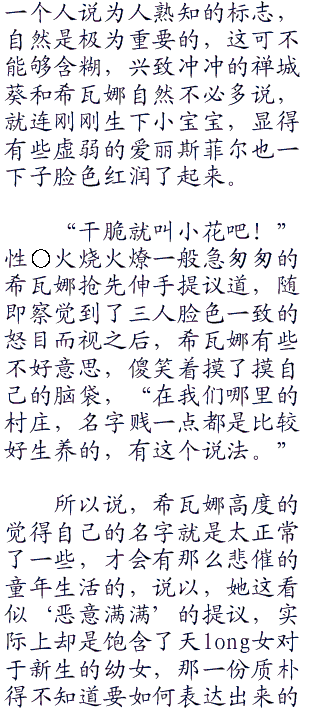 一个人说为人熟知的标志，
自然是极为重要的，这可不
能够含糊，兴致冲冲的禅城
葵和希瓦娜自然不必多说，
就连刚刚生下小宝宝，显得
有些虚弱的爱丽斯菲尔也一
下子脸色红润了起来。
“干脆就叫小花吧！”
性〇火烧火燎一般急匆匆的
希瓦娜抢先伸手提议道，随
即察觉到了三人脸色一致的
怒目而视之后，希瓦娜有些
不好意思，傻笑着摸了摸自
己的脑袋，“在我们哪里的
村庄，名字贱一点都是比较
好生养的，有这个说法。”
所以说，希瓦娜高度的
觉得自己的名字就是太正常
了一些，才会有那么悲催的
童年生活的，说以，她这看
似‘恶意满满’的提议，实
际上却是饱含了天long女对
于新生的幼女，那一份质朴
得不知道要如何表达出来的